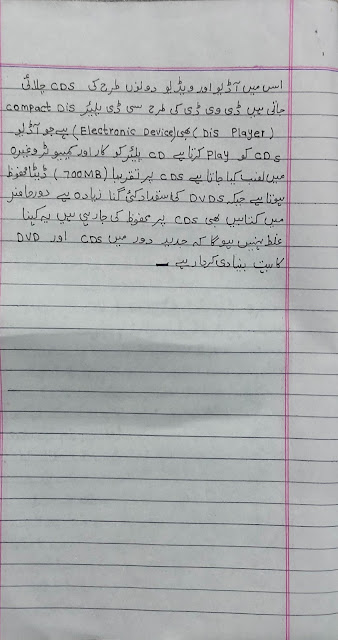 اس میں آڈیو اور ویڈیو دونوں طرح کی CDs چلائی
جاتی ہیں ڈی وی ڈی کی طرح سی ڈی پلیئر Compact Dis
(Dis Player) بھی (Electronic Device) ہے جو آڈیو
CDs کو Play کرتا ہے CD پلیئر کو کار اور کمپیوٹر وغیرہ
میں نصب کیا جاتا ہے CDs پر تقریبا (700MB) ڈیٹا محفوظ
ہوتا ہے جبکہ DVDs کی استعداد کئی گنا زیادہ ہے دور حاضر
میں کتابیں بھی CDs پر محفوظ کی جا رہی ہیں یہ کہنا
غلط نہیں ہوگا کہ جدید دور میں CDs اور DVD
کا بہت بنیادی کردار ہے ۔